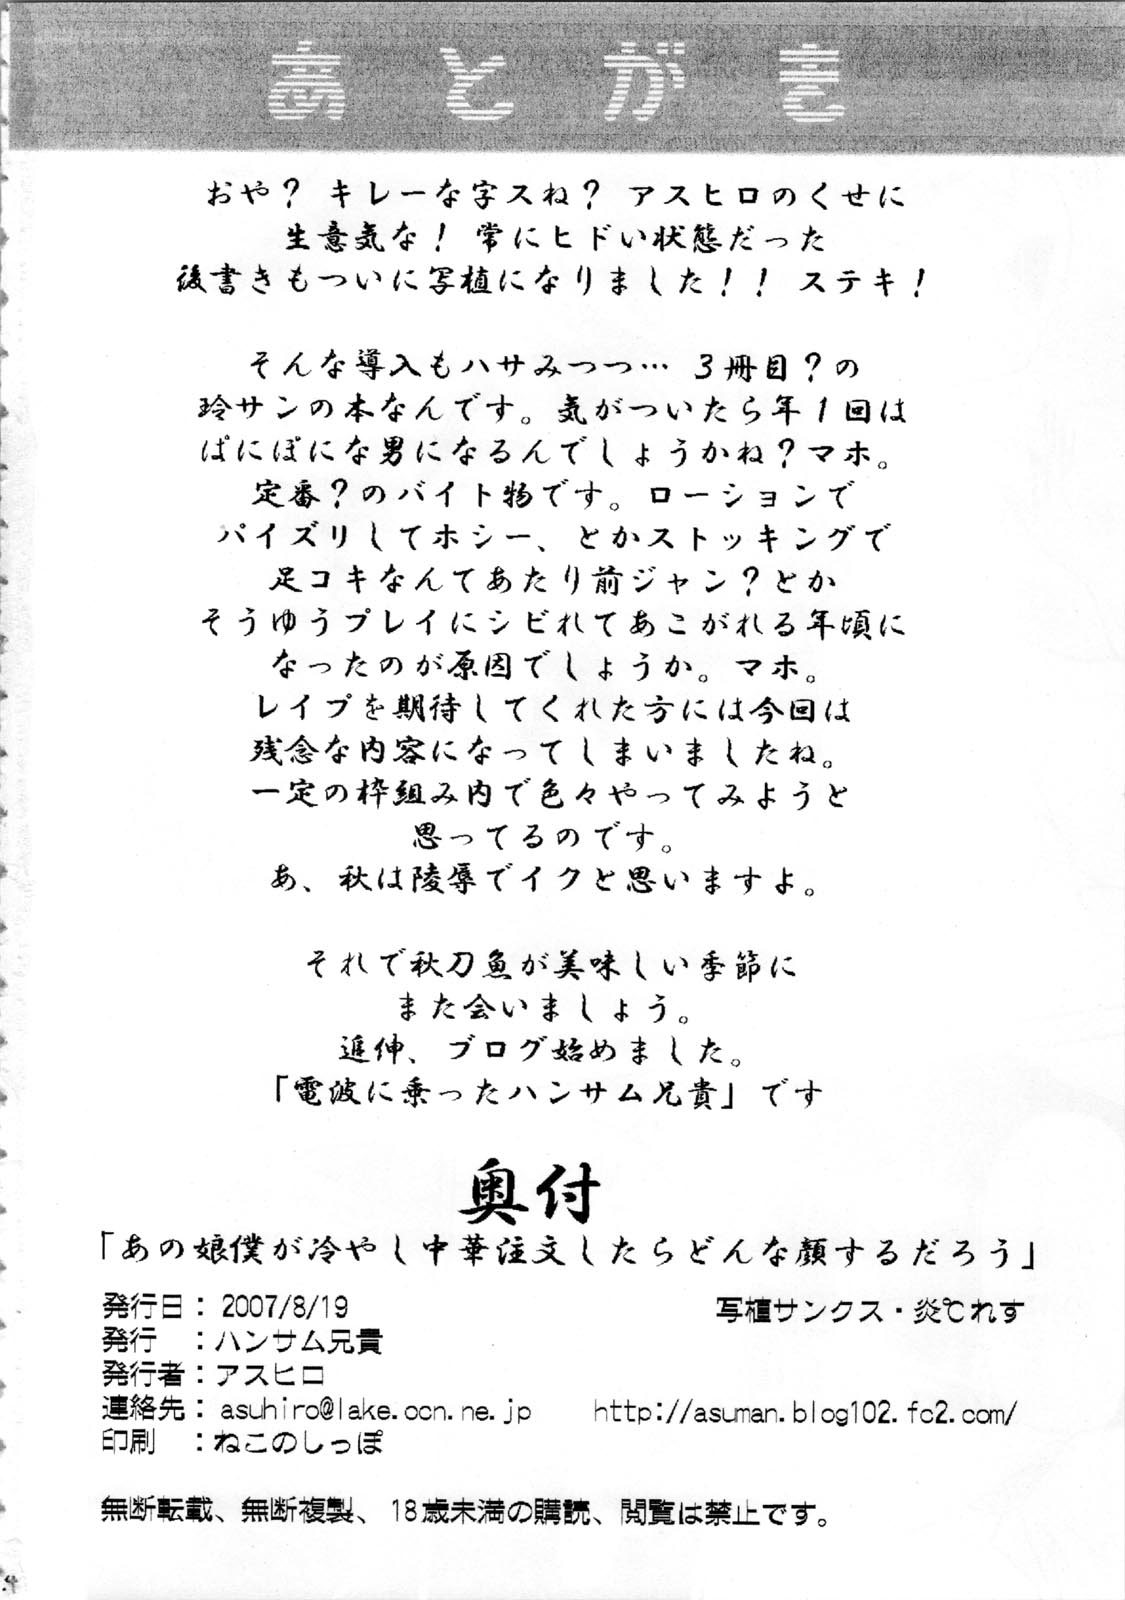 あとがき
おや？ キレーな字スね？ アスヒロのくせに
生意気な！ 常にヒドい状態だった
後書きもついに写植になりました！！ ステキ！
そんな導入もハサみつつ… 3冊目？の
玲サンの本なんです。気がついたら年1回は
ぱにぽにな男になるんでしょうかね？マホ。
定番？のバイト物です。ローションで
パイズリしてホシー、とかストッキングで
足コキなんてあたり前ジャン？とか
そうゆうプレイにシビれてあこがれる年頃に
なったのが原因でしょうか。マホ。
レイプを期待してくれた方には今回は
残念な内容になってしまいましたね。
一定の枠組み内で色々やってみようと
思ってるのです。
あ、秋は陵辱でイクと思いますよ。
それで秋刀魚が美味しい季節に
また会いましょう。
追伸、ブログ始めました。
「電波に乗ったハンサム兄貴」です
奥付
「あの娘僕が冷やし中華注文したらどんな顔するだろう」
発行日： 2007/8/19 写植サンクス・炎℃れす
発行 ：ハンサム兄貴
発行者：アスヒロ
連絡先： asuhiro@lake.ocn.ne.jp http://asuman.blog102.fc2.com/
印刷 ：ねこのしっぽ
無断転載、無断複製、18歳未満の購読、閲覧は禁止です。